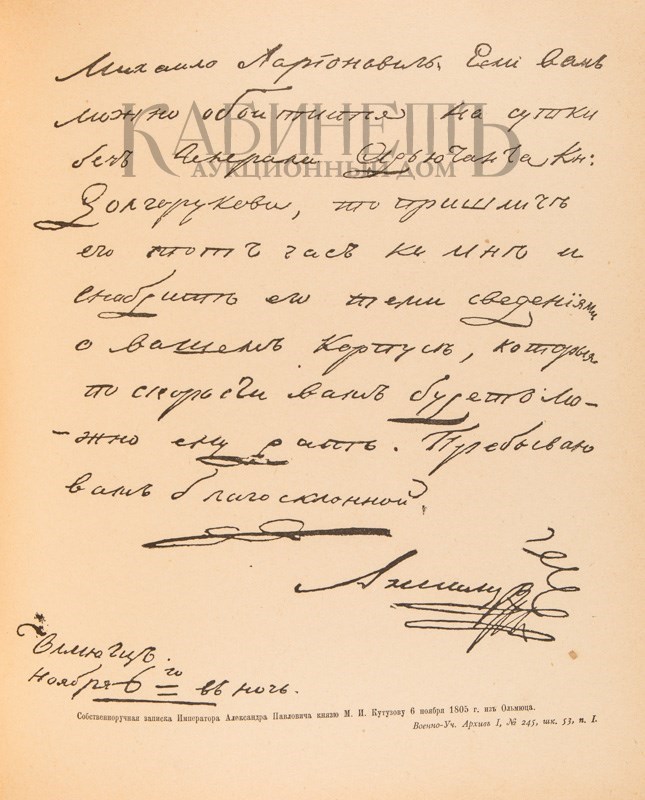 Михаило Ларіоновичь. Есьли вамъ
можно обойтиться на сутки
безъ Генерала Адъютанта Кн:
Долгорукова, то пришлите
его тотъ часъ ко мнѣ и
снабдите его теми сведеніями
о вашемъ Корпусѣ, которыя
по скорости вамъ будетъ мо-
-жно ему дать. Пребываю
вамъ благосклонной.
Александръ
Олмюцъ.
ноября 6го въ ночь.
КАБИНЕТЪ
АУКЦИОННЫЙ ДОМ
Собственноручная записка Императора Александра Павловича князю М. И. Кутузову 6 ноября 1805 г. изъ Ольмюца.
Военно-Уч. Архивъ I, № 245, шк. 53, п. I.